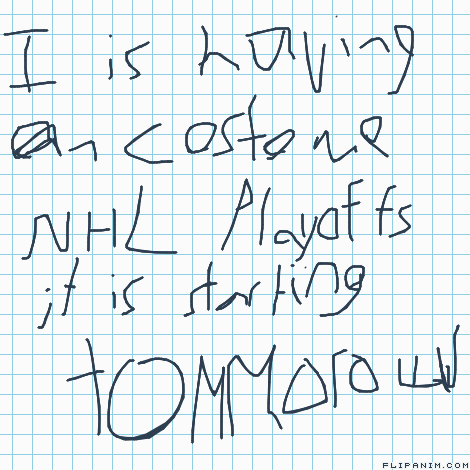 I is having
an costome
NHL Playoffs
it is starting
tOMMOroW
FLIPANIM.COM